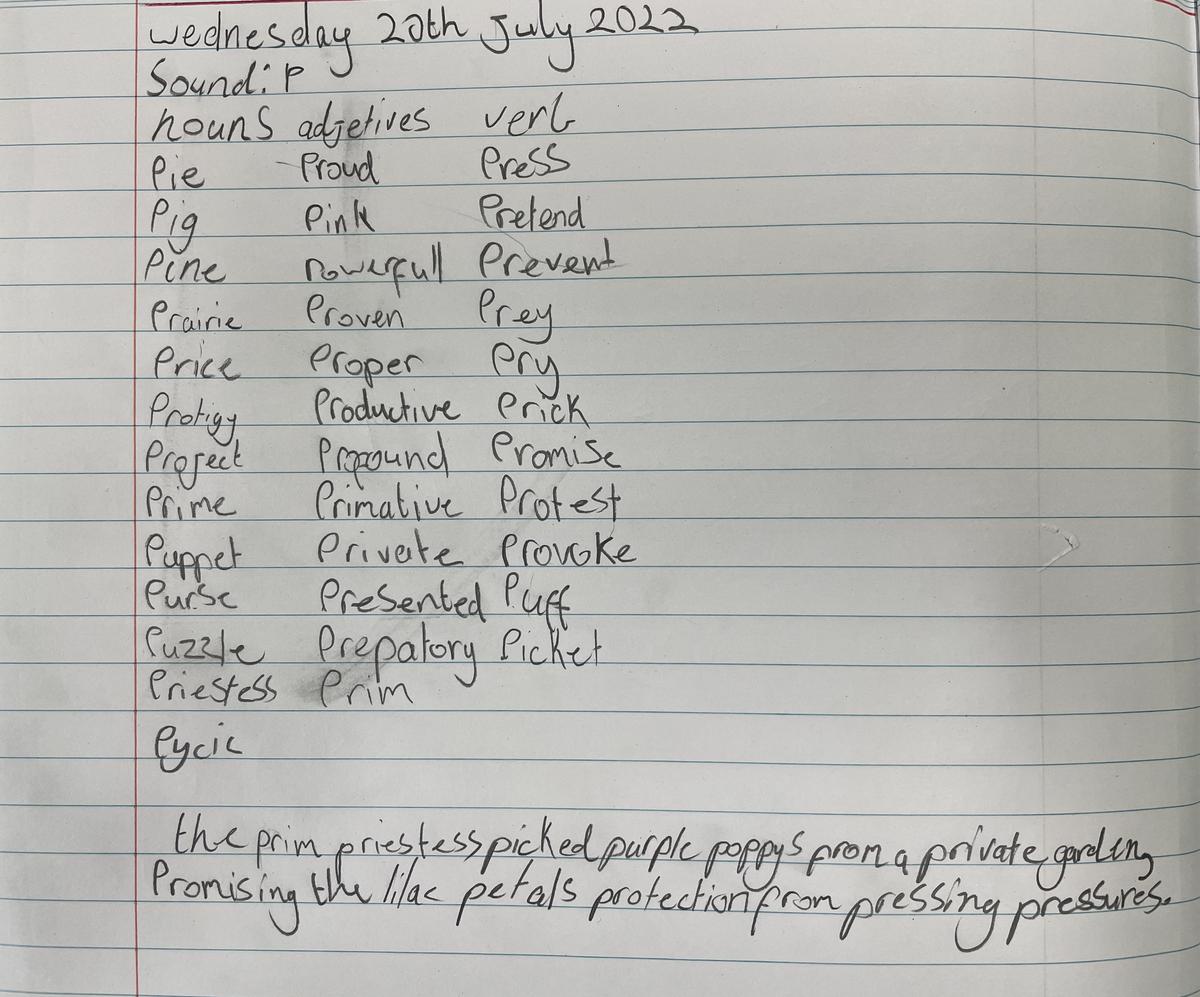 wednesday 20th July 2022
Sound: P
nouns adjetives verb
Pie Proud Press
Pig Pink Pretend
Pine Powerfull Prevent
Prairie Proven Prey
Price Proper Pry
Protigy Productive Prick
Project Propound Promise
Prime Primative Protest
Puppet Private Provoke
Purse Presented Puff
Puzzle Prepatory Picket
Priestess Prim
Pycic
the prim priestess picked purple poppys from a private garden,
Promising the lilac petals protection from pressing pressures.